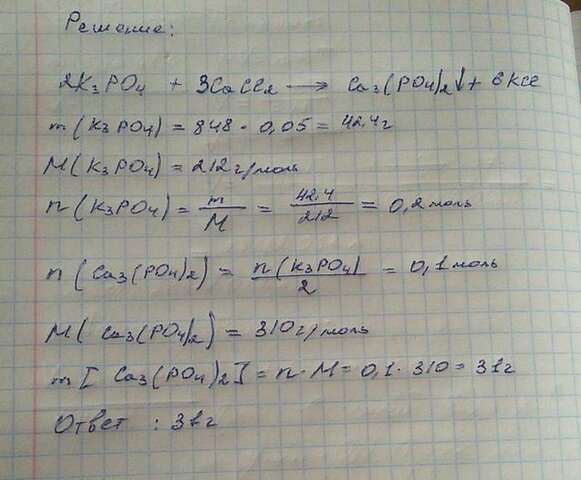 Решение:
2K3PO4 + 3CaCl2 → Ca3(PO4)2↓ + 6KCl
m(K3PO4) = 848 · 0,05 = 42,4г
M(K3PO4) = 212г/моль
n(K3PO4) = m/M = 42,4/212 = 0,2моль
n(Ca3(PO4)2) = n(K3PO4)/2 = 0,1моль
M(Ca3(PO4)2) = 310г/моль
m[Ca3(PO4)2] = n·M = 0,1·310 = 31г
Ответ : 31г